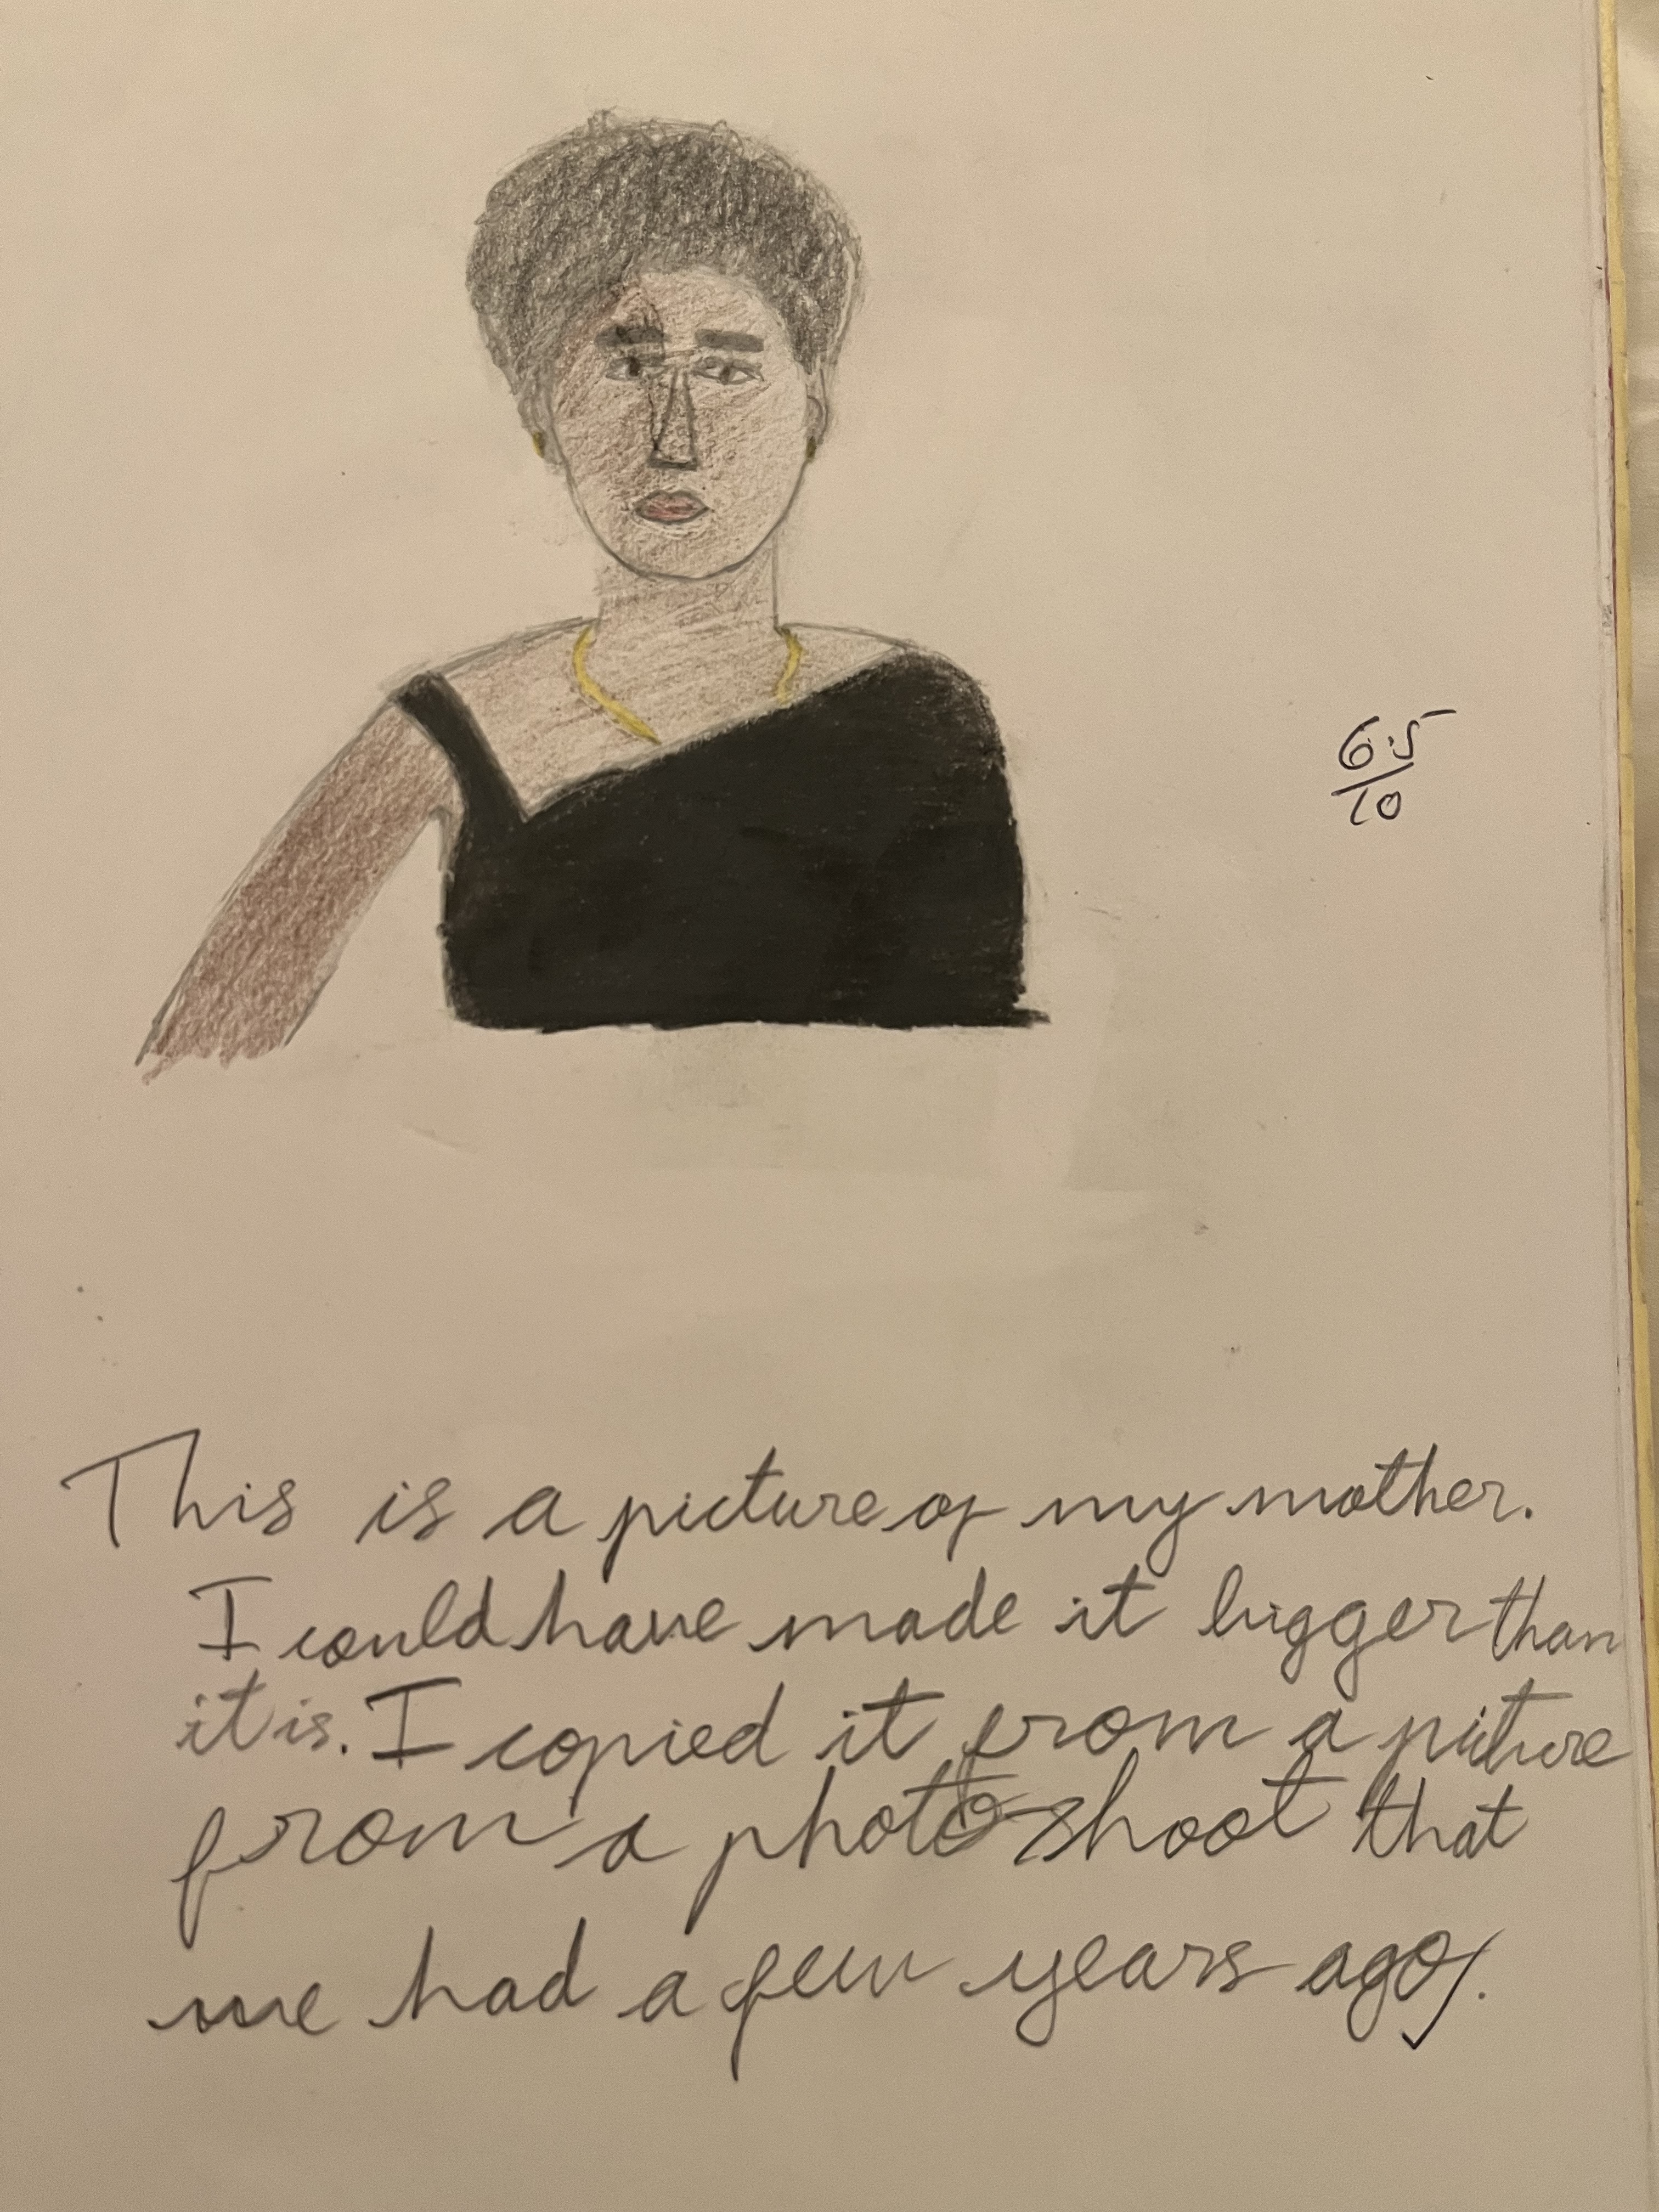 6.5
10
This is a picture of my mother.
I could have made it bigger than
it is. I copied it from a picture
from a photo-shoot that
we had a few years ago.